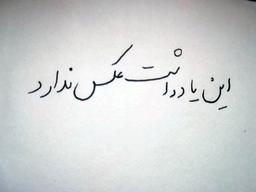 این یادداشت عکس ندارد